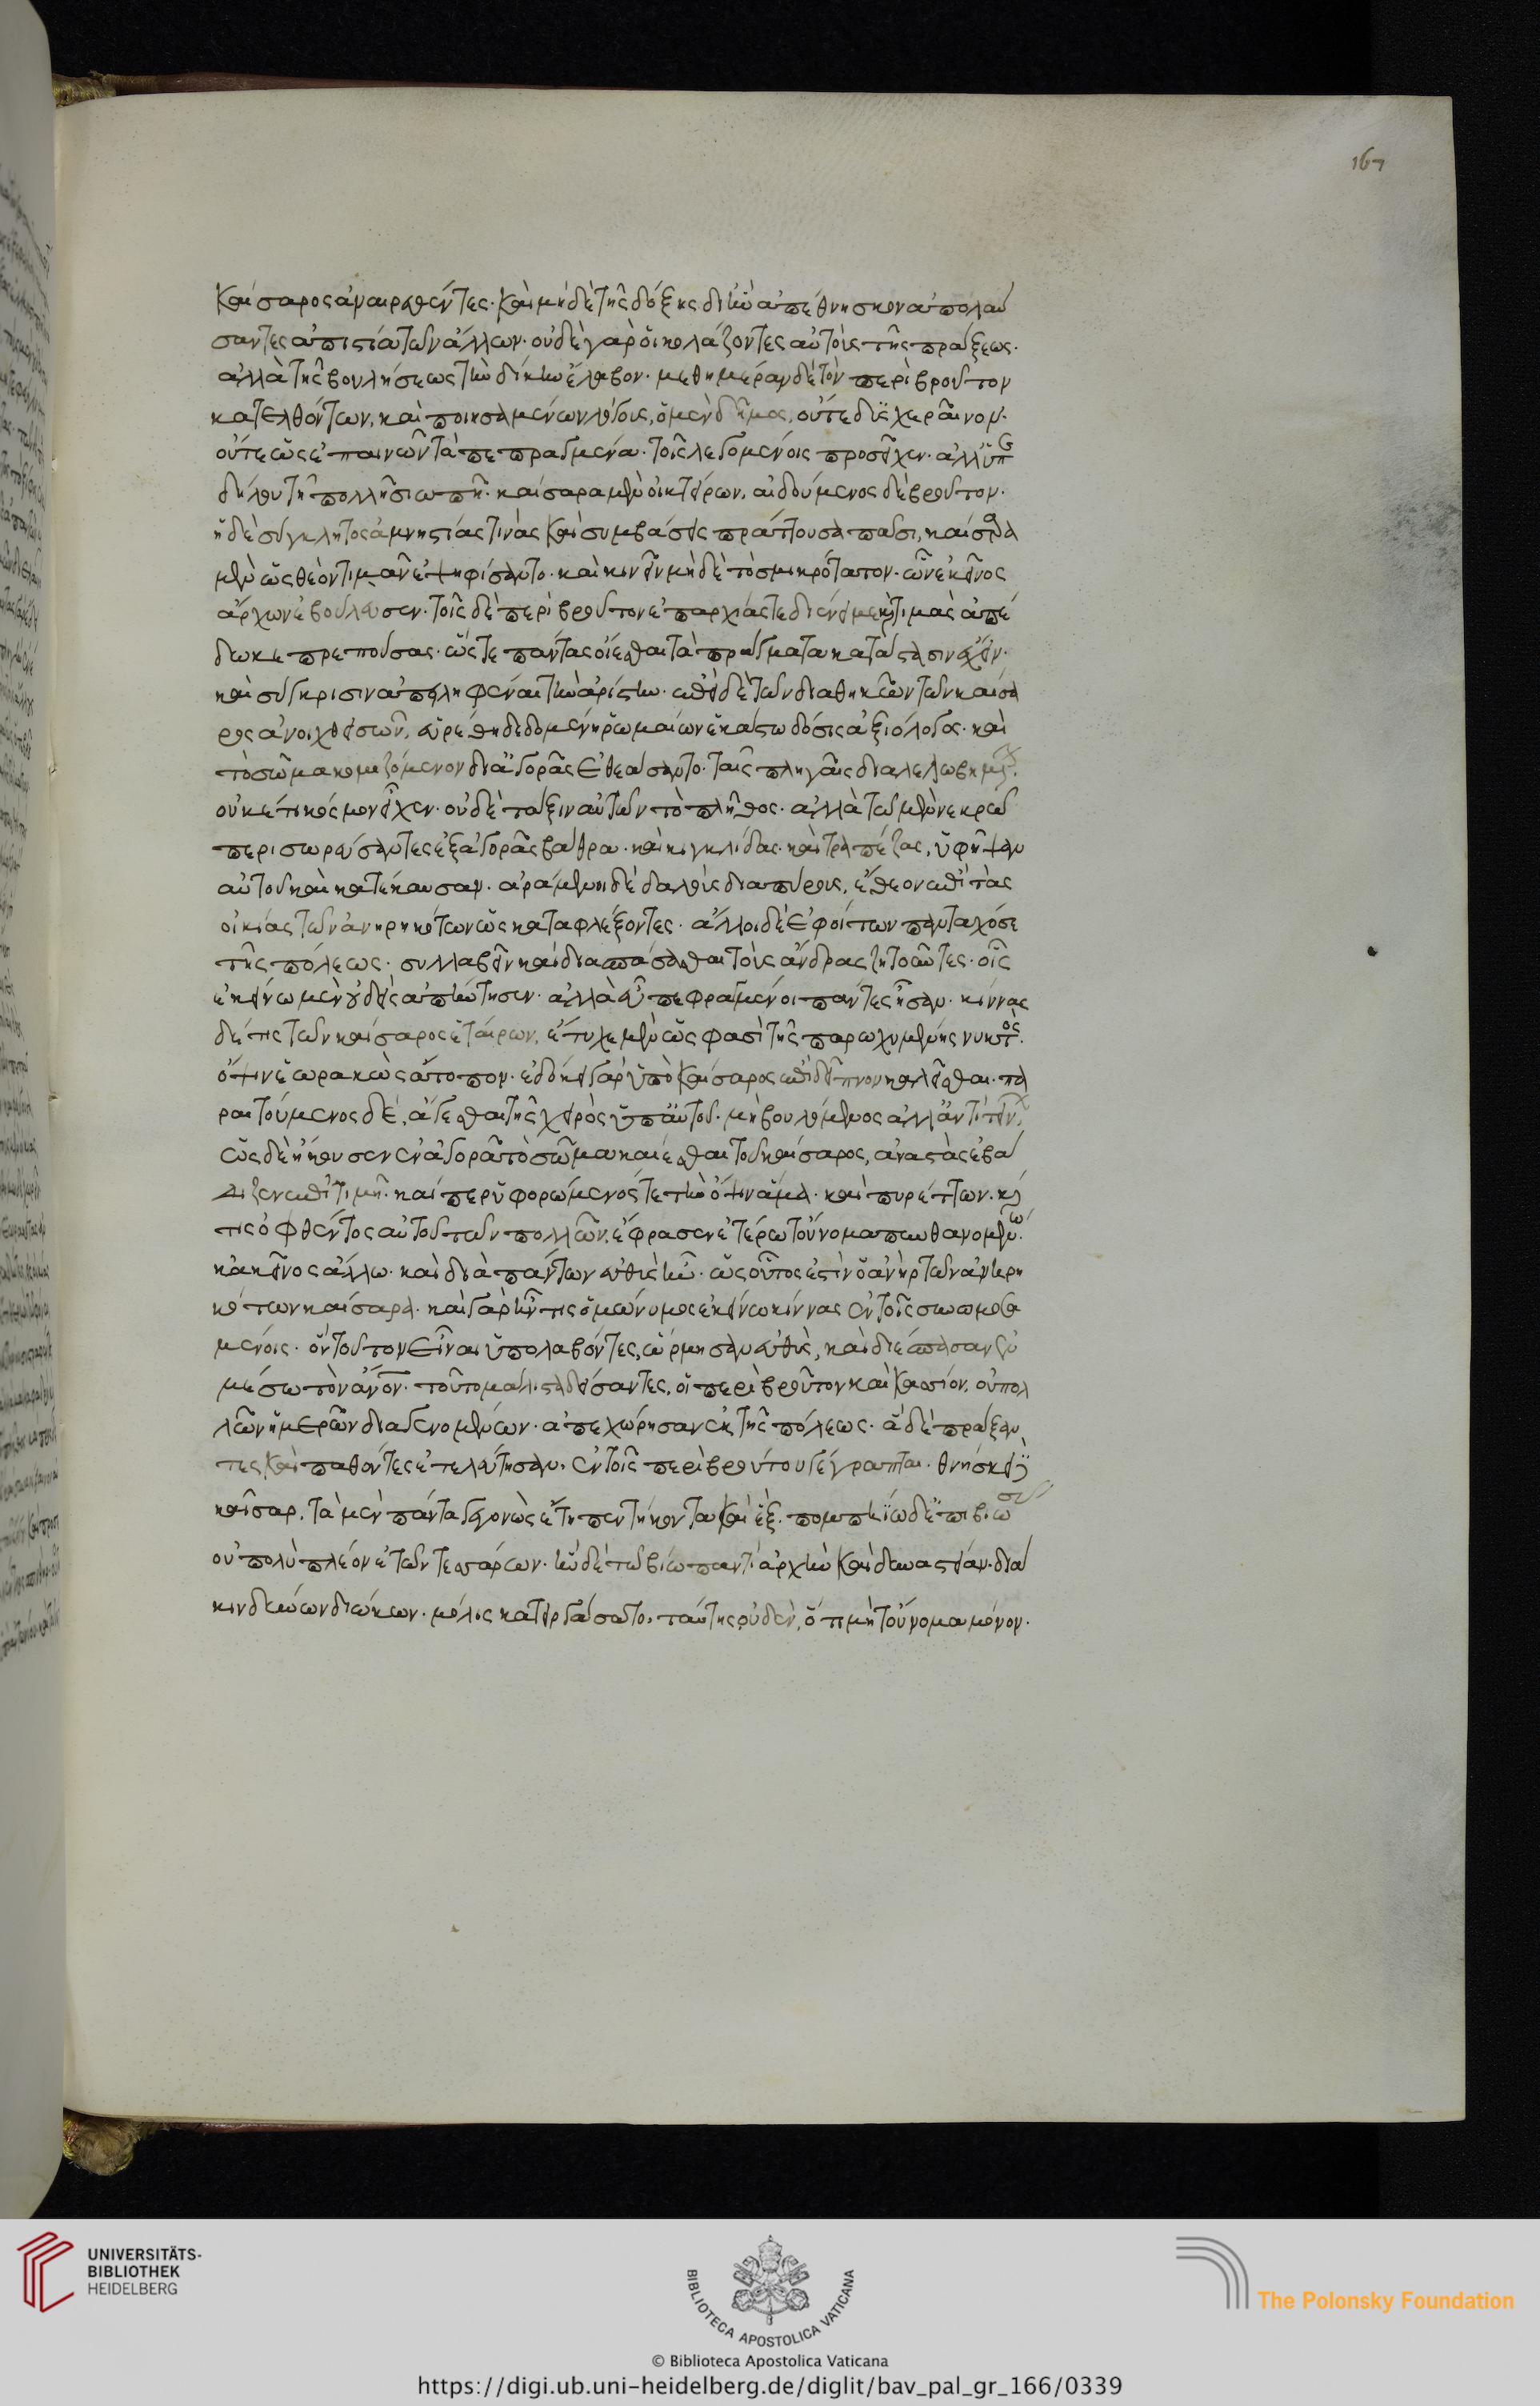 167
Καίσαρος ἀναιρεθέντες. καὶ μὴ δὲ τῆς δόξης δι' ἣν ἀπέθνησκον ἀπολαύ
σαντες ἀπιστία τῶν ἄλλων. οὐδὲ γὰρ οἱ κολάζοντες αὐτοὺς τῆς πράξεως.
ἀλλὰ τῆς βουλήσεως τὴν δίκην ἔλαβον. μεθημέραν δὲ τῶν περὶ βροῦτον
κατελθόντων, καὶ ποιησαμένων λόγους, ὁ μὲν δῆμος, οὔτε δυσχεραίνων.
οὔτε ὡς ἐπαινῶν τὰ πεπραγμένα. τοῖς λεγομένοις προσεῖχεν. ἀλλ' ὑπ
δήλου τῇ πολλῇ σιωπῇ. καίσαρα μὲν οἰκτείρων, αἰδούμενος δὲ βροῦτον.
ἡ δὲ σύγκλητος ἀμνηστίας τινὰς καὶ συμβάσεις πράττουσα πᾶσι, καίσρα
μὲν ὡς θεὸν τιμᾶν ἐψηφίσαντο. καὶ κινεῖν μὴ δὲ τὸ σμικρότατον. ὧν ἐκεῖνος
ἄρχων ἐβούλευσεν. τοῖς δὲ περὶ βροῦτον ἐπαρχίας τε διένειμε κ τιμὰς ἀπέ
δωκε πρεπούσας. ὥς τε πάντας οἴεσθαι τὰ πράγματα κατάστασιν ἔχειν.
καὶ σύγκρισιν ἀπειληφέναι τὴν ἀρίστην. ἐπεὶ δὲ τῶν διαθηκῶν τῶν καίσα
ρος ἀνοιχθεισῶν, εὑρέθη δεδομένη ῥωμαίων ἑκάστω δόσις ἀξιόλογος. καὶ
τὸ σῶμα κομιζόμενον δι' ἀγορᾶς ἐθεάσαντο. ταῖς πληγαῖς διαλελωβημέν.
οὐκέτι κόσμον εἶχεν. οὐδὲ τάξιν αὐτῶν τὸ πλῆθος. ἀλλὰ τῶ μὲν νεκρῶ
περισωρεύσαντες ἐξ ἀγορᾶς βάθρα. καὶ κιγκλίδας. καὶ τραπέζας, ὑφῆψαν
αὐτοῦ καὶ κατέκαυσαν. ἀράμενοι δὲ δαλοὺς διαπύρους, ἔθεον ἐπὶ τὰς
οἰκίας τῶν ἀνηρηκότων ὡς καταφλέξοντες. ἄλλοι δὲ ἐφοίτων πανταχόσε
τῆς πόλεως. συλλαβεῖν καὶ διασπάσασθαι τοὺς ἄνδρας ζητοῦντες. οἷς
ἐκείνω μὲν οὐδεὶς ἀπήντησεν. ἀλλὰ εὖ πεφραγμένοι πάντες ἦσαν. κίννας
δέ τις τῶν καίσαρος ἑταίρων, ἔτυχε μὲν ὥς φασὶ τῆς παρωχημένης νυκτος.
ὄψιν ἑωρακὼς ἄτοπον. ἐδόκει γὰρ ὑπὸ Καίσαρος ἐπὶ δεῖπνον καλεῖσθαι. πα
ραιτούμενος δὲ, ἄγεσθαι τῆς χειρὸς ὑπ' αὐτοῦ. μὴ βουλόμενος ἀλλ' ἀντιτείν.
ὡς δὲ ἤκουσεν ἐν ἀγορᾶ τὸ σῶμα καίεσθαι τοῦ καίσαρος, ἀναστὰς ἐβά
διζεν ἐπὶ τιμῇ. καί περ ὑφορώμενός τε τὴν ὄψιν ἅμα. καὶ πυρέττων. κ
τις ὀφθέντος αὐτοῦ τῶν πολλῶν, ἔφρασεν ἑτέρω τοὔνομα πυνθανομένω.
κἀκεῖνος ἄλλω. καὶ διὰ πάντων εὐθὺς ἦν. ὡς οὗτος ἐστὶν ὁ ἀνὴρ τῶν ἀνηρη
κότων καίσαρα. καὶ γὰρ ἦν τις ὁμώνυμος ἐκείνω κίννας ἐν τοῖς συνομοσα
μένοις. ὃν τοῦτον εἶναι ὑπολαβόντες, ὥρμησαν εὐθὺς, καὶ διέσπασαν ἐν
μέσω τὸν ἄνον. τοῦτο μάλιστα δείσαντες, οἱ περὶ βροῦτον καὶ Κάσιον, οὐ πολ
λῶν ἡμερῶν διαγενομένων. ἀπεχώρησαν ἐκ τῆς πόλεως. ἃ δὲ πράξαν
τες καὶ παθόντες ἐτελεύτησαν, ἐν τοῖς περὶ βρούτου γέγραπται. θνήσκει
καῖσαρ, τὰ μὲν πάντα γεγονὼς ἔτη πεντήκοντα καὶ ἕξ. πομπηίω δὲ ἐπιβιώ
σας
οὐ πολὺ πλέον ἐτῶν τεσσάρων. ἣν δὲ τῶ βίω παντὶ ἀρχὴν καὶ δυναστείαν. διὰ
κινδύνων διώκων. μόλις κατειργάσατο, ταύτης οὐδὲν, ὅτι μὴ τοὔνομα μόνον.
UNIVERSITÄTS-
BIBLIOTHEK
HEIDELBERG
BIBLIOTECA APOSTOLICA VATICANA
The Polonsky Foundation
© Biblioteca Apostolica Vaticana
https://digi.ub.uni-heidelberg.de/diglit/bav_pal_gr_166/0339